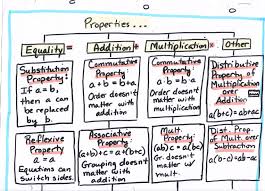 Properties...
Equality = Addition + Multiplication • Other
Substitution
Property:
If a=b,
then a can
be replaced
by b.
Commutative
Property
a+b=b+a
Order doesn't
matter with
addition
Commutative
Property
a·b=b·a
Order doesn't
matter with
multiplication
Distributive
Property of
Multiplication
over
Addition
a(b+c)=ab+ac
Reflexive
Property
a=a
Equations can
switch sides.
Associative
Property
(a+b)+c=a+(b+c)
Grouping doesn't
matter with
addition
Mult.
Property:
(ab)c=a(bc)
Gr. doesn't
matter w/
mult.
Dist. Prop.
of Mult. over
Subtraction
a(b-c)=ab-ac